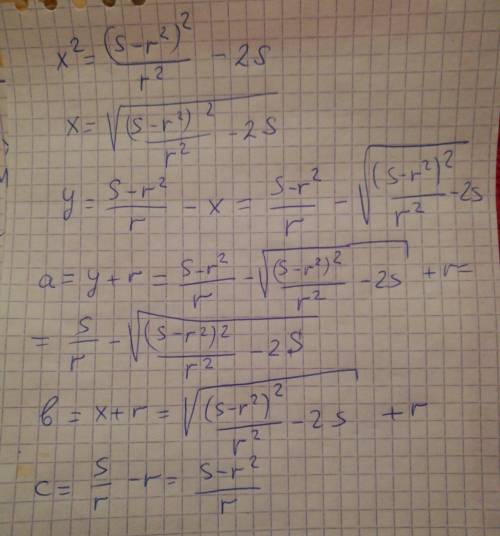 x² = (S-r²)²/r² - 2S
x = √((S-r²)²/r² - 2S)
y = (S-r²)/r - x = (S-r²)/r - √((S-r²)²/r² - 2S)
a = y+r = (S-r²)/r - √((S-r²)²/r² - 2S) + r =
= S/r - √((S-r²)²/r² - 2S)
b = x+r = √((S-r²)²/r² - 2S) + r
c = S/r - r = (S-r²)/r